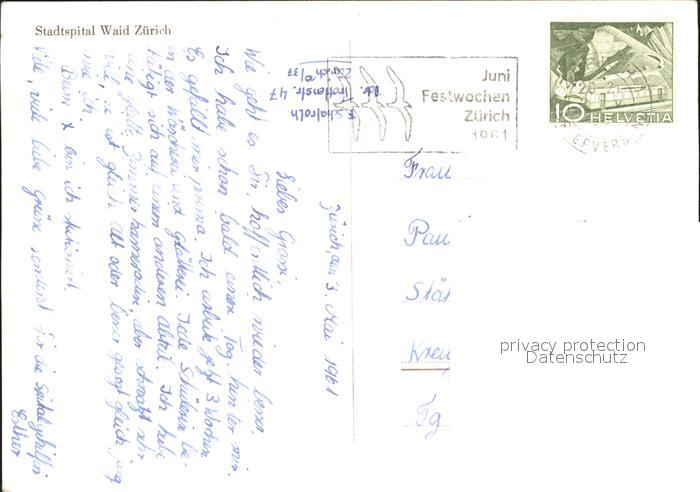 Stadtspital Waid Zürich
Juni
Festwochen
Zürich
1961
10 HELVETIA
Zürich, den 3. Mai 1961
Liebes Grosi,
Wie geht es Dir, hoffentlich wieder besser.
Ich habe schon bald einen Tag hinter mir.
Es gefällt mir prima. Ich arbeite jetzt 3 Wochen
in der Wäscherei und Glätterei. Jede Schülerin be-
tätigt sich auf einem anderen Abteil. Ich habe
eine Zimmerkameradin, aber
viel, ist gleich alt oder besser gesagt gleich jung
wie ich.
Beim X bin ich stationiert.
Viele, viele liebe Grüsse sendet Dir die Spitalgehilfin
Esther
E. Schafroth
Tièchestr. 47
Zürich 10/37
Frau
Pau
Stä
Kreu
Tg
privacy protection
Datenschutz